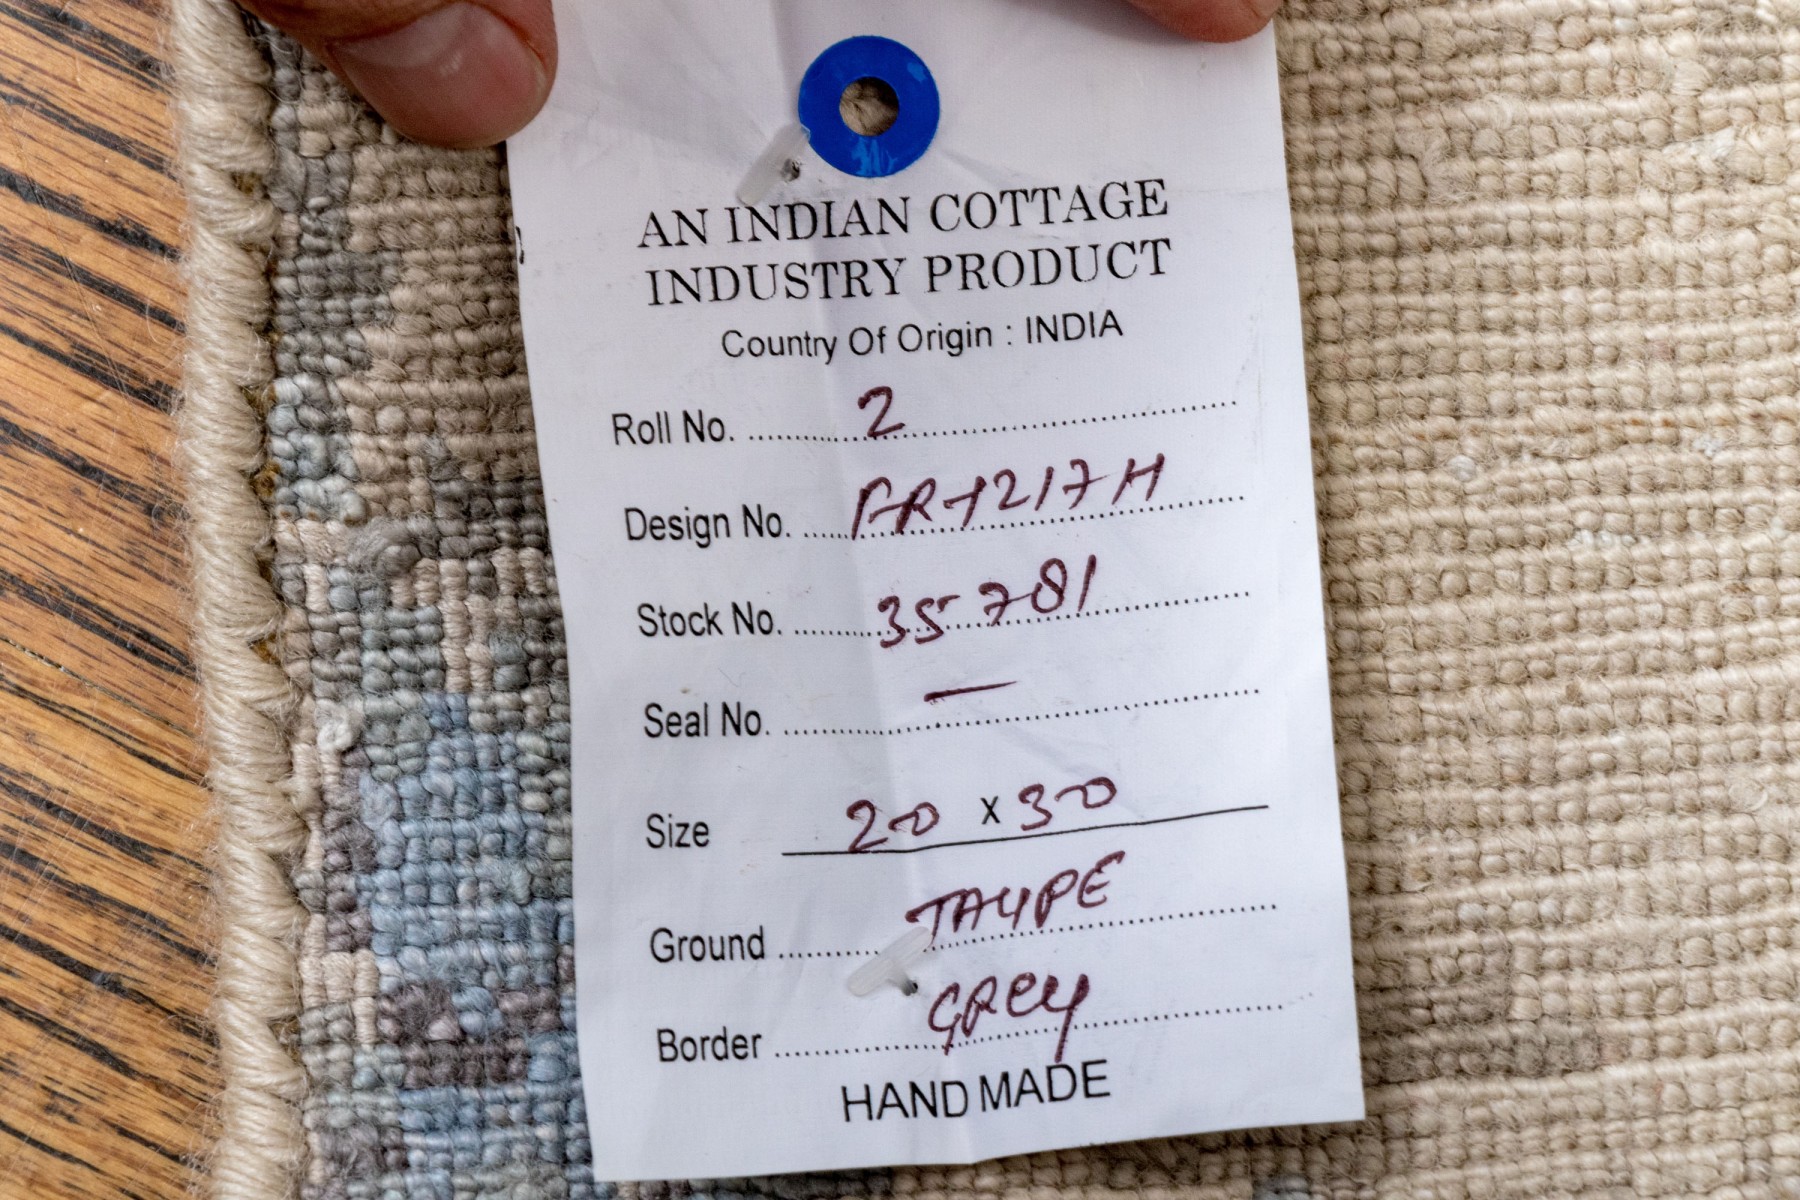 AN INDIAN COTTAGE
INDUSTRY PRODUCT
Country Of Origin : INDIA
Roll No. 2
Design No.
Stock No. 35781
Seal No. —
Size 20 x 30
Ground TAUPE
Border GREY
HAND MADE